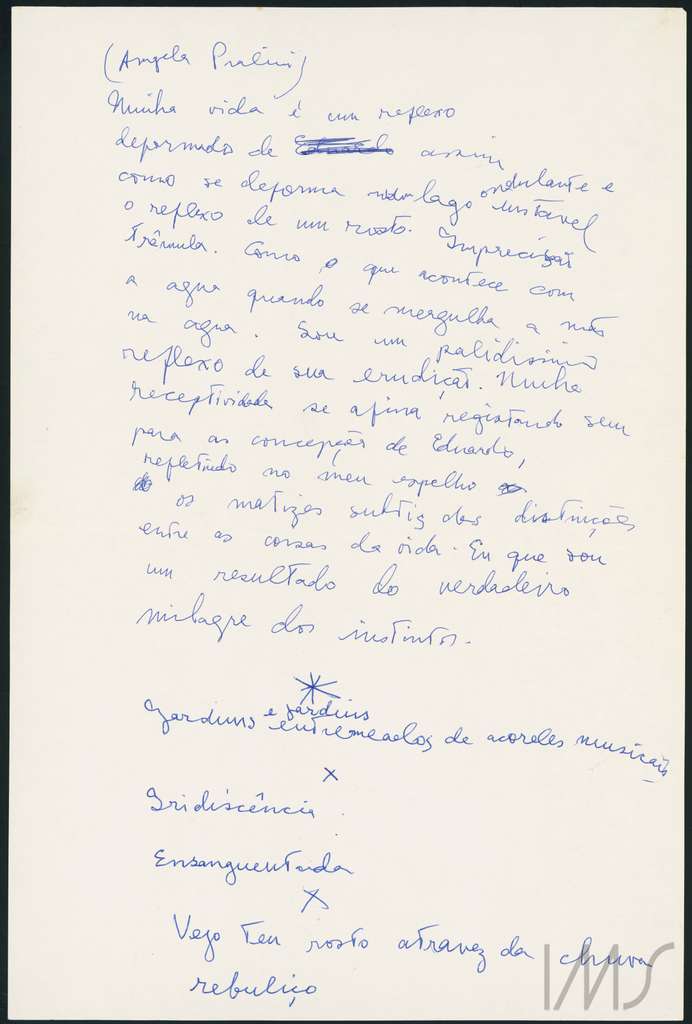 (Angela Pralini)
Minha vida é um reflexo
deformado de Eduardo assim
como se deforma num lago ondulante e
instavel
o reflexo de um rosto. Imprecisão
trêmula. Como o que acontece com
a agua quando se mergulha a mão
na agua. Sou um palidissimo
reflexo de sua erudição. Minha
receptividade se afina registando sem
para as concepções de Eduardo,
refletindo no meu espelho
os matizes subtis das distinções
entre as coisas da vida. Eu que sou
um resultado do verdadeiro
milagre dos instintos.
*
Jardins e jardins
entremeados de acordes musicais
x
Iridiscência
Ensanguentada
x
Vejo teu rosto atravez da chuva
rebuliço
IMS